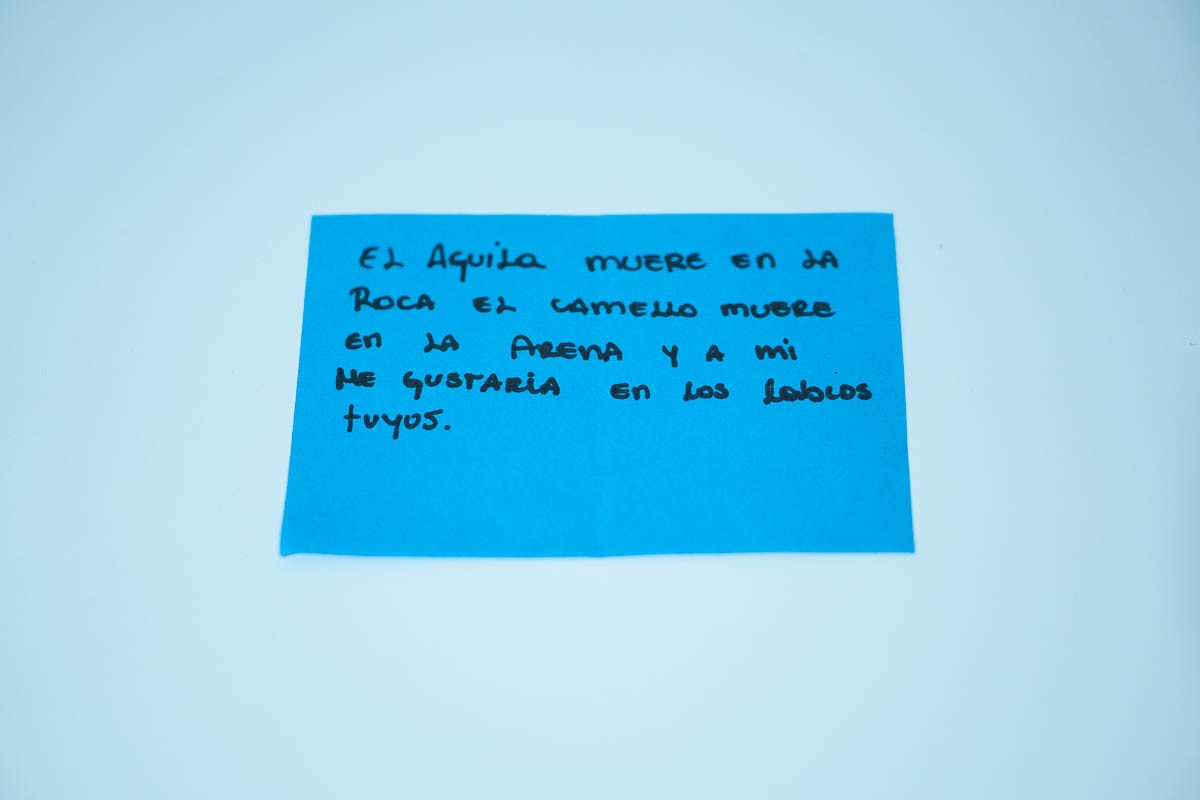 EL AguiLa MUERE En LA
ROCA EL CAMELLO MUERE
En LA ARENA Y A mi
ME GUSTARiA En LOS Labios
tuyos.